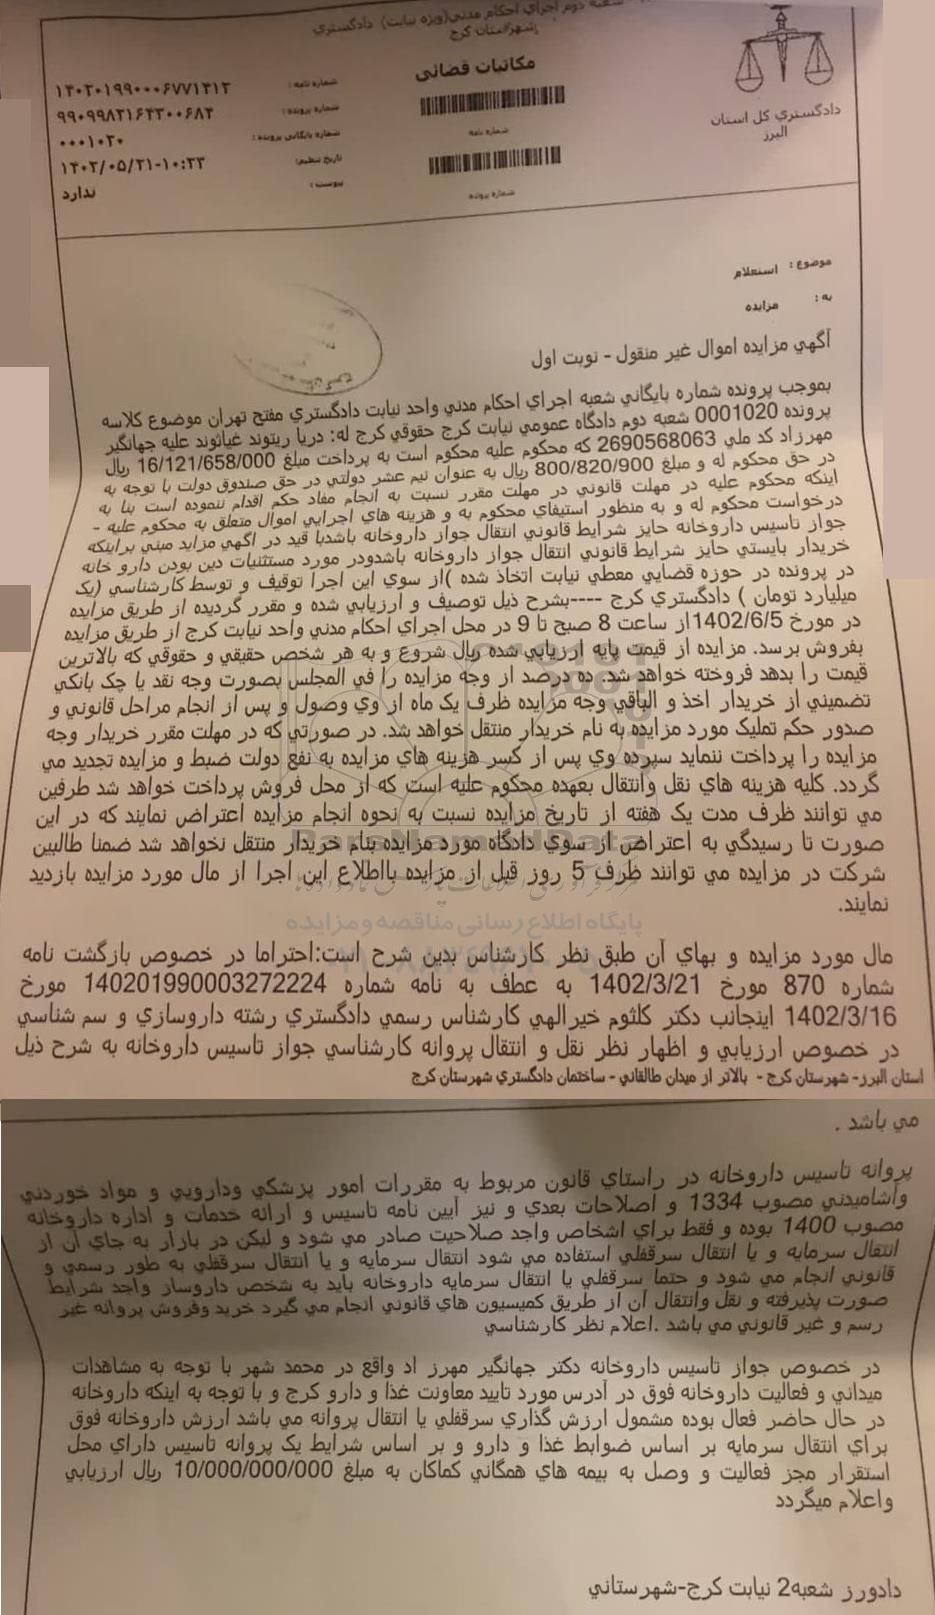 شعبه دوم اجراي احكام مدني(ويژه نيابت) دادگستري
شهرستان كرج
مكاتبات قضائي
دادگستري كل استان
البرز
شماره نامه :
شماره نامه
شماره پرونده :
شماره بايگاني پرونده :
۰۰۰۱۰۲۰
تاريخ تنظيم:
۱۴۰۲/۰۵/۲۱-۱۰:۲۳
پيوست :
ندارد
شماره پرونده
موضوع : استعلام
به : مزايده
آگهي مزايده اموال غير منقول - نوبت اول
بموجب پرونده شماره بايگاني شعبه اجراي احكام مدني واحد نيابت دادگستري مفتح تهران موضوع كلاسه
پرونده 0001020 شعبه دوم دادگاه عمومي نيابت كرج حقوقي كرج له: دريا ريتوند غياثوند عليه جهانگير
مهرزاد كد ملي 2690568063 كه محكوم عليه محكوم است به پرداخت مبلغ 16/121/658/000 ريال
در حق محكوم له و مبلغ 800/820/900 ريال به عنوان نيم عشر دولتي در حق صندوق دولت با توجه به
اينكه محكوم عليه در مهلت قانوني در مهلت مقرر نسبت به انجام مفاد حكم اقدام ننموده است بنا به
درخواست محكوم له و به منظور استيفاي محكوم به و هزينه هاي اجرايي اموال متعلق به محكوم عليه -
جواز تاسيس داروخانه حايز شرايط قانوني انتقال جواز داروخانه باشدبا قيد در اگهي مزايد مبني براينكه
خريدار بايستي حايز شرايط قانوني انتقال جواز داروخانه باشدودر مورد مستثنيات دين بودن دارو خانه
در پرونده در حوزه قضايي معطي نيابت اتخاذ شده )از سوي اين اجرا توقيف و توسط كارشناسي (يك
ميليارد تومان ) دادگستري كرج ----بشرح ذيل توصيف و ارزيابي شده و مقرر گرديده از طريق مزايده
در مورخ 1402/6/5از ساعت 8 صبح تا 9 در محل اجراي احكام مدني واحد نيابت كرج از طريق مزايده
بفروش برسد. مزايده از قيمت پايه ارزيابي شده ريال شروع و به هر شخص حقيقي و حقوقي كه بالاترين
قيمت را بدهد فروخته خواهد شد. ده درصد از وجه مزايده را في المجلس بصورت وجه نقد يا چك بانكي
تضميني از خريدار اخذ و الباقي وجه مزايده ظرف يك ماه از وي وصول و پس از انجام مراحل قانوني و
صدور حكم تمليك مورد مزايده به نام خريدار منتقل خواهد شد. در صورتي كه در مهلت مقرر خريدار وجه
مزايده را پرداخت ننمايد سپرده وي پس از كسر هزينه هاي مزايده به نفع دولت ضبط و مزايده تجديد مي
گردد. كليه هزينه هاي نقل وانتقال بعهده محكوم عليه است كه از محل فروش پرداخت خواهد شد طرفين
مي توانند ظرف مدت يک هفته از تاريخ مزايده نسبت به نحوه انجام مزايده اعتراض نمايند كه در اين
صورت تا رسيدگي به اعتراض از سوي دادگاه مورد مزايده بنام خريدار منتقل نخواهد شد ضمنا طالبين
شركت در مزايده مي توانند ظرف 5 روز قبل از مزايده بااطلاع اين اجرا از مال مورد مزايده بازديد
نمايند.
ParsNamadData
پايگاه اطلاع رساني مناقصه و مزايده
مال مورد مزايده و بهاي آن طبق نظر كارشناس بدين شرح است:احتراما در خصوص بازگشت نامه
شماره 870 مورخ 1402/3/21 به عطف به نامه شماره 140201990003272224 مورخ
1402/3/16 اينجانب دكتر كلثوم خيرالهي كارشناس رسمي دادگستري رشته داروسازي و سم شناسي
در خصوص ارزيابي و اظهار نظر نقل و انتقال پروانه كارشناسي جواز تاسيس داروخانه به شرح ذيل
استان البرز- شهرستان كرج - بالاتر از ميدان طالقاني - ساختمان دادگستري شهرستان كرج
مي باشد .
پروانه تاسيس داروخانه در راستاي قانون مربوط به مقررات امور پزشكي ودارويي و مواد خوردني
وآشاميدني مصوب 1334 و اصلاحات بعدي و نيز آيين نامه تاسيس و ارائه خدمات و اداره داروخانه
مصوب 1400 بوده و فقط براي اشخاص واجد صلاحيت صادر مي شود و ليكن در بازار به جاي آن از
انتقال سرمايه و يا انتقال سرقفلي استفاده مي شود انتقال سرمايه و يا انتقال سرقفلي به طور رسمي و
قانوني انجام مي شود و حتما سرقفلي يا انتقال سرمايه داروخانه بايد به شخص داروساز واجد شرايط
صورت پذيرفته و نقل وانتقال آن از طريق كميسيون هاي قانوني انجام مي گيرد خريد وفروش پروانه غير
رسم و غير قانوني مي باشد .اعلام نظر كارشناسي
در خصوص جواز تاسيس داروخانه دكتر جهانگير مهرز اد واقع در محمد شهر با توجه به مشاهدات
ميداني و فعاليت داروخانه فوق در آدرس مورد تاييد معاونت غذا و دارو كرج و با توجه به اينكه داروخانه
در حال حاضر فعال بوده مشمول ارزش گذاري سرقفلي يا انتقال پروانه مي باشد ارزش داروخانه فوق
براي انتقال سرمايه بر اساس ضوابط غذا و دارو و بر اساس شرايط يک پروانه تاسيس داراي محل
استقرار مجز فعاليت و وصل به بيمه هاي همگاني كماكان به مبلغ 10/000/000/000 ريال ارزيابي
واعلام ميگردد
دادورز شعبه2 نيابت كرج-شهرستاني